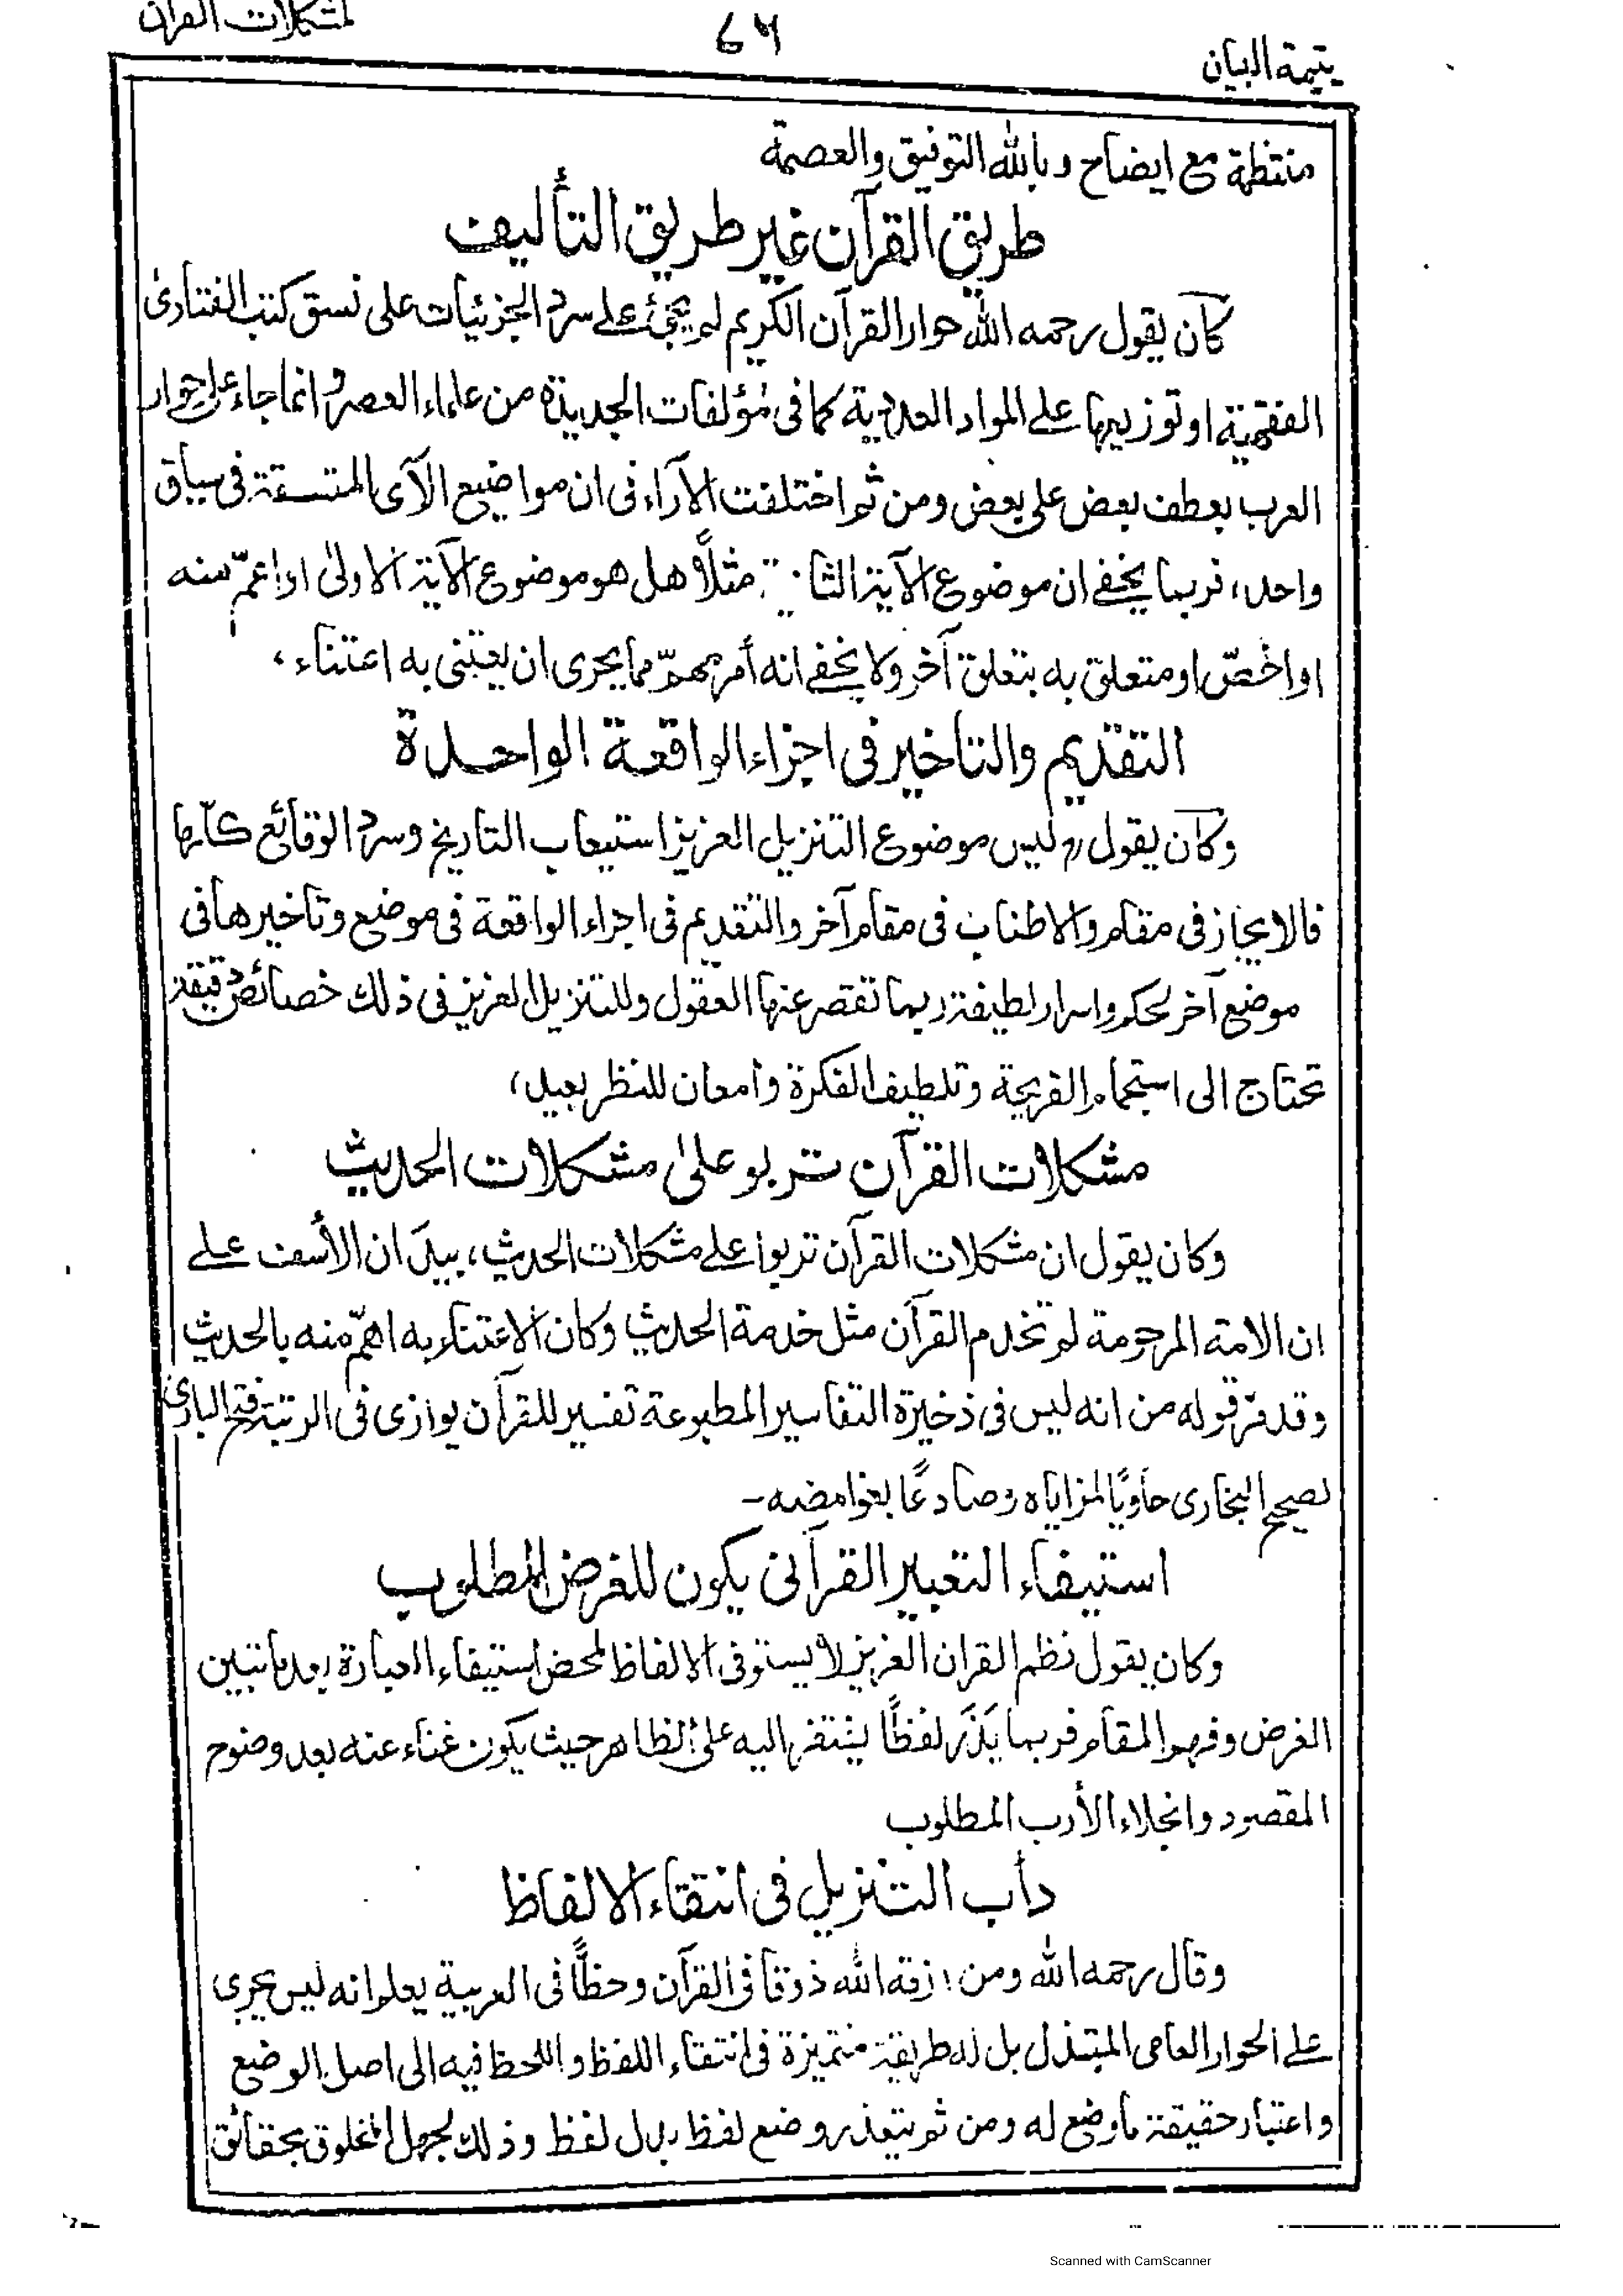 مشكلات القرآن
يتيمة البيان
منتظمة مع ايضاح وبالله التوفيق والعصمة
طريق القرآن غير طريق التأليف
كان يقول رحمه الله حوار القرآن الكريم لم يجئ على سرد الجزئيات على نسق كتب الفتاوىٰ
الفقهية او توزيعها على المواد العددية كما فى مؤلفات الجديدة من علماء العصر وانما جاء على حوار
العرب بعطف بعض على بعض ومن ثم اختلفت الآراء فى ان مواضيع الآى المتسقة فى سياق
واحد، فربما يخفى ان موضوع الآية مثلاً هل هو موضوع الآية الاولىٰ او اعمّ منه
او اخصّ او متعلق به بتعلق آخر ولا يخفى انه أمر مهمّ مما يحرى ان يعتنى به اعتناء،
التقديم والتاخير فى اجزاء الواقعة الواحدة
وكان يقول رح ليس موضوع التنزيل العزيز استيعاب التاريخ وسرد الوقائع كلّها
فالايجاز فى مقام والاطناب فى مقام آخر والتقديم فى اجزاء الواقعة فى موضع وتاخيرها فى
موضع آخر لحكم واسرار لطيفة ربما تقصر عنها العقول وللتنزيل العزيز فى ذلك خصائص دقيقة
تحتاج الى استجمام القريحة وتلطيف الفكرة وامعان للنظر بعيد،
مشكلات القرآن تربو علىٰ مشكلات الحديث
وكان يقول ان مشكلات القرآن تربوا على مشكلات الحديث، بيد ان الأسف على
ان الامة المرحومة لم تخدم القرآن مثل خدمة الحديث وكان الاعتناء به اهمّ منه بالحديث
وقد مرّ قوله من انه ليس فى ذخيرة التفاسير المطبوعة تفسير للقرآن يوازى فى الرتبة فتح البارى
لصحيح البخارى حاويًا لمزاياه وصادعًا بغوامضه-
استيفاء التعبير القرآنى يكون للغرض المطلوب
وكان يقول نظم القران العزيز لا يستوفى الالفاظ لمحض استيفاء العبارة بعد ما تبين
الغرض وفهم المقام فربما يَذَر لفظًا يفتقر اليه على الظاهر حيث يكون غناء عنه بعد وضوح
المقصود وانجلاء الأرب المطلوب
دأب التنزيل فى انتقاء الالفاظ
وقال رحمه الله ومن رزقه الله ذوقا فى القرآن وحظًّا فى العربية يعلم انه ليس يجرى
على الحوار العامى المبتذل بل له طريقة متميزة فى انتقاء اللفظ واللحظ فيه الى اصل الوضع
واعتبار حقيقة ما وضع له ومن ثم يتعذر وضع لفظ بدل لفظ وذلك لجهل المخلوق بحقائق
Scanned with CamScanner